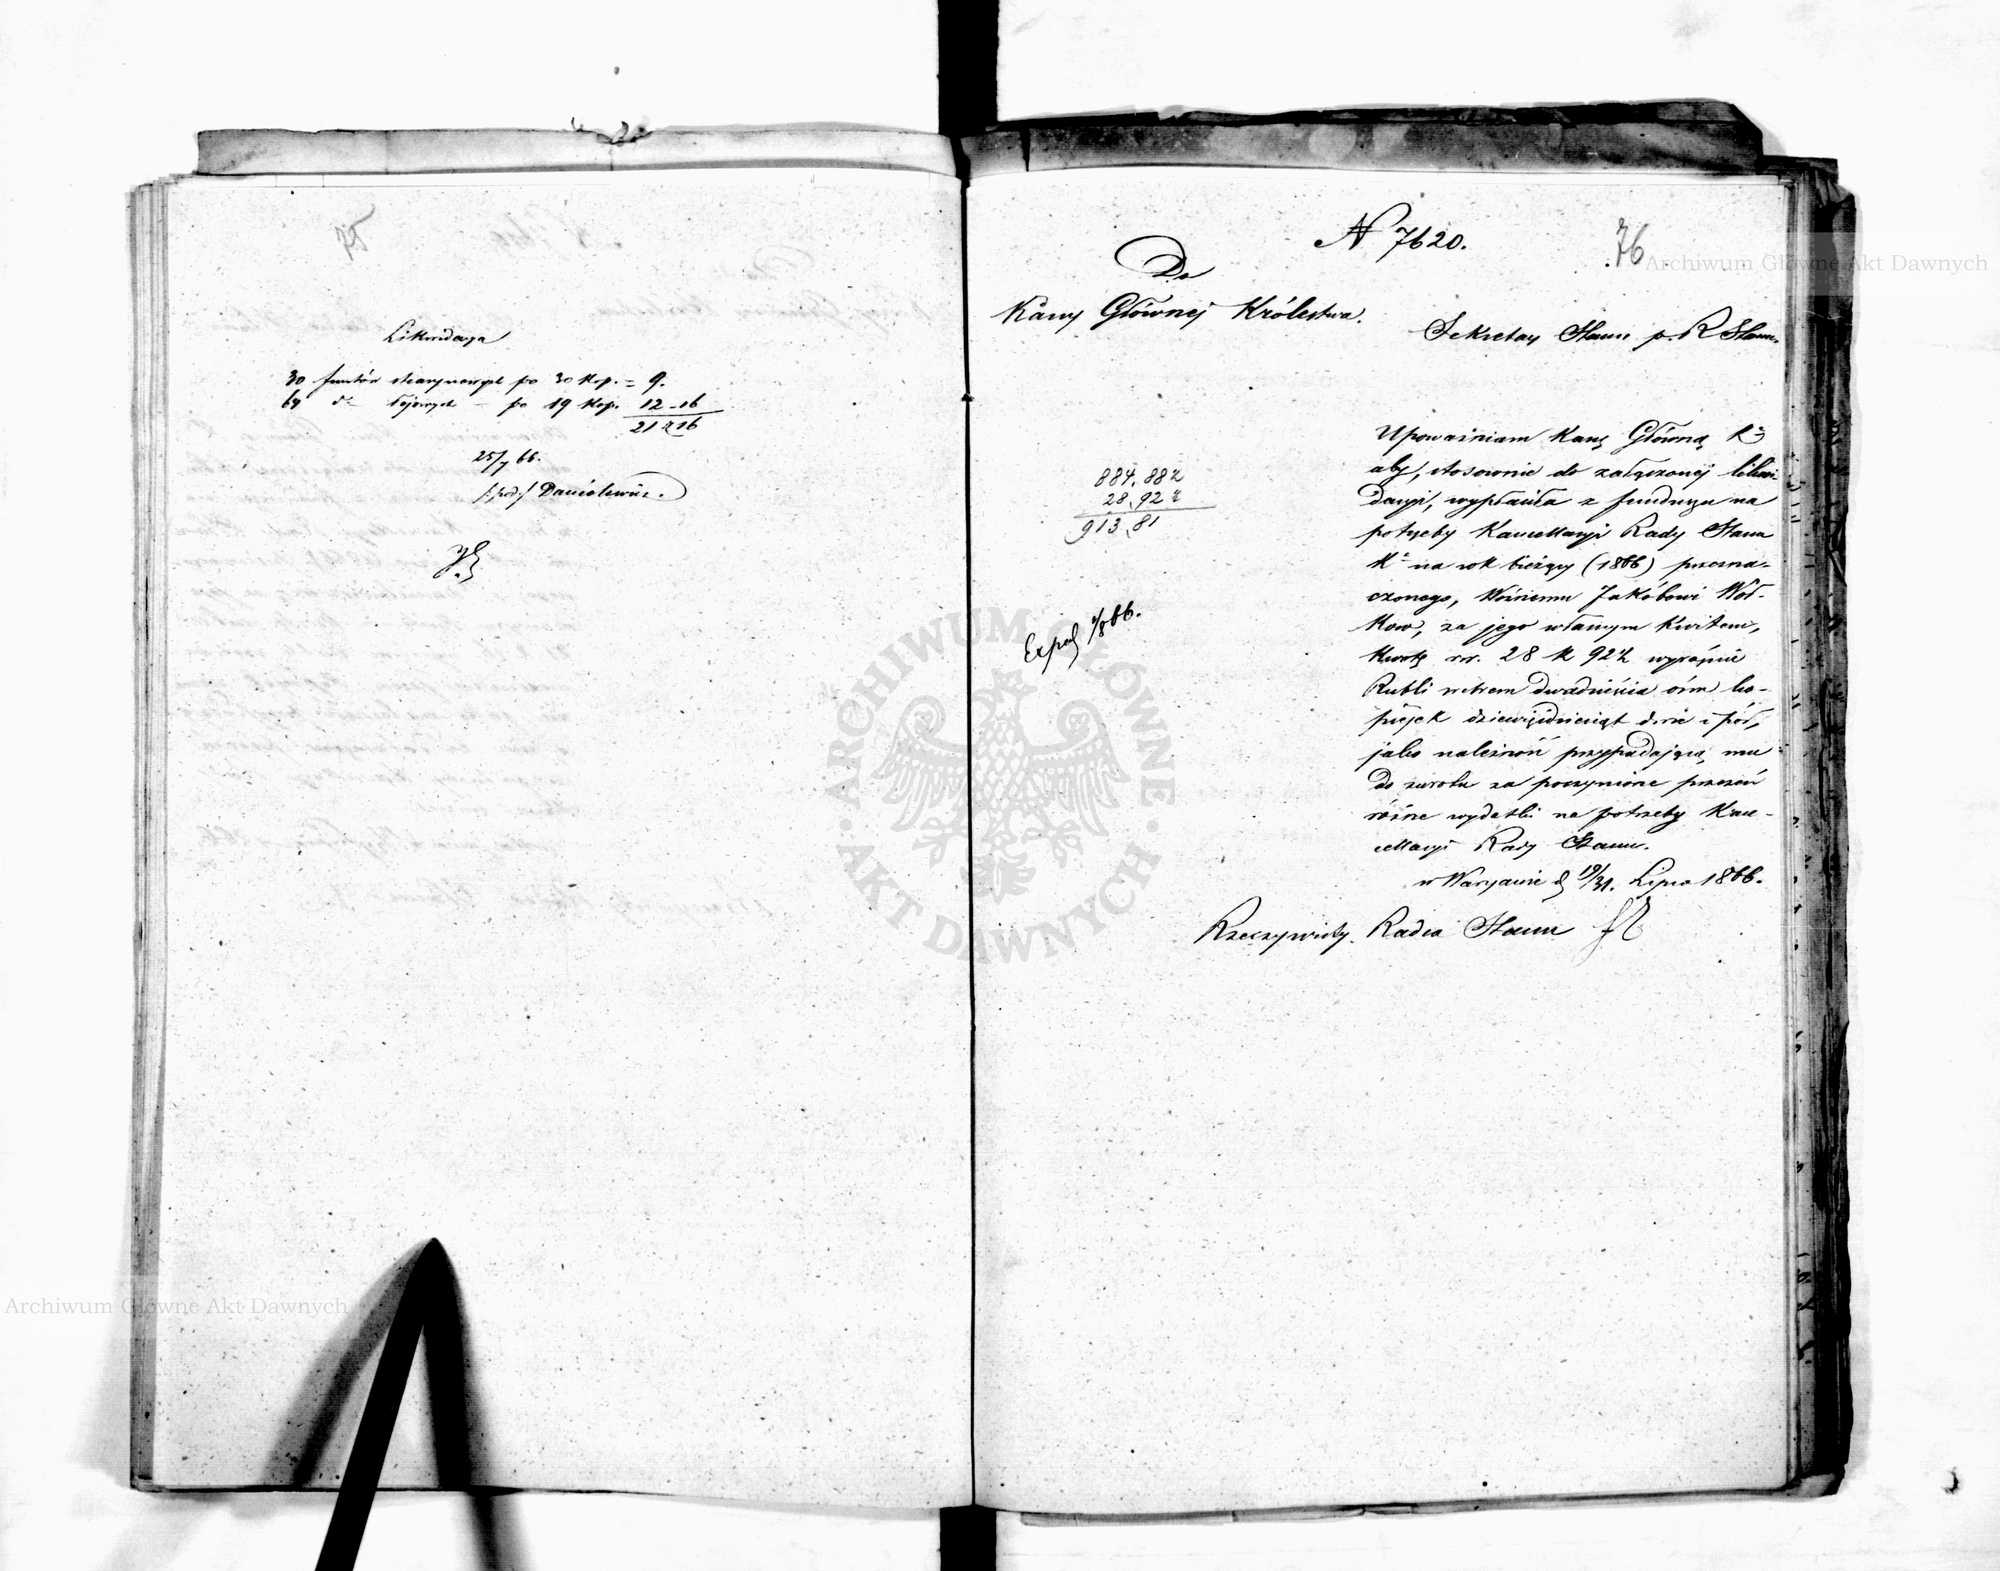 75
Likwidacya
30 funtów stearynowych po 30 kop. = 9.
64 do łojowych — po 19 kop. 12-16
21 r 16
25/7 66.
/:podp:/ Danielewicz.
№ 7620.
76
Do
Kassy Głównej Królestwa.
Sekretarz Stanu p. R Stanu
Upoważniam Kassę Główną Kr
aby, stosownie do załączonej likwi-
dacyi, wypłaciła z funduszu na
potrzeby Kancellaryi Rady Stanu
Kr na rok bieżący (1866) przezna-
czonego, Woźnemu Jakóbowi Woł-
kow, za jego własnym kwitem,
kwotę rsr. 28 k 92½ wyraźnie
Rubli srebrem dwadzieścia ośm ko-
piejek dziewięćdziesiąt dwie i pół,
jako należność przypadającą mu
do zwrotu za poczynione przezeń
różne wydatki na potrzeby Kan-
cellaryi Rady Stanu.
w Warszawie d 19/31. Lipca 1866.
Rzeczywisty Radca Stanu
884, 88½
28, 92½
913, 81
Exped 1/8 66.
ARCHIWUM GŁÓWNE
AKT DAWNYCH
Archiwum Główne Akt Dawnych
Archiwum Główne Akt Dawnych